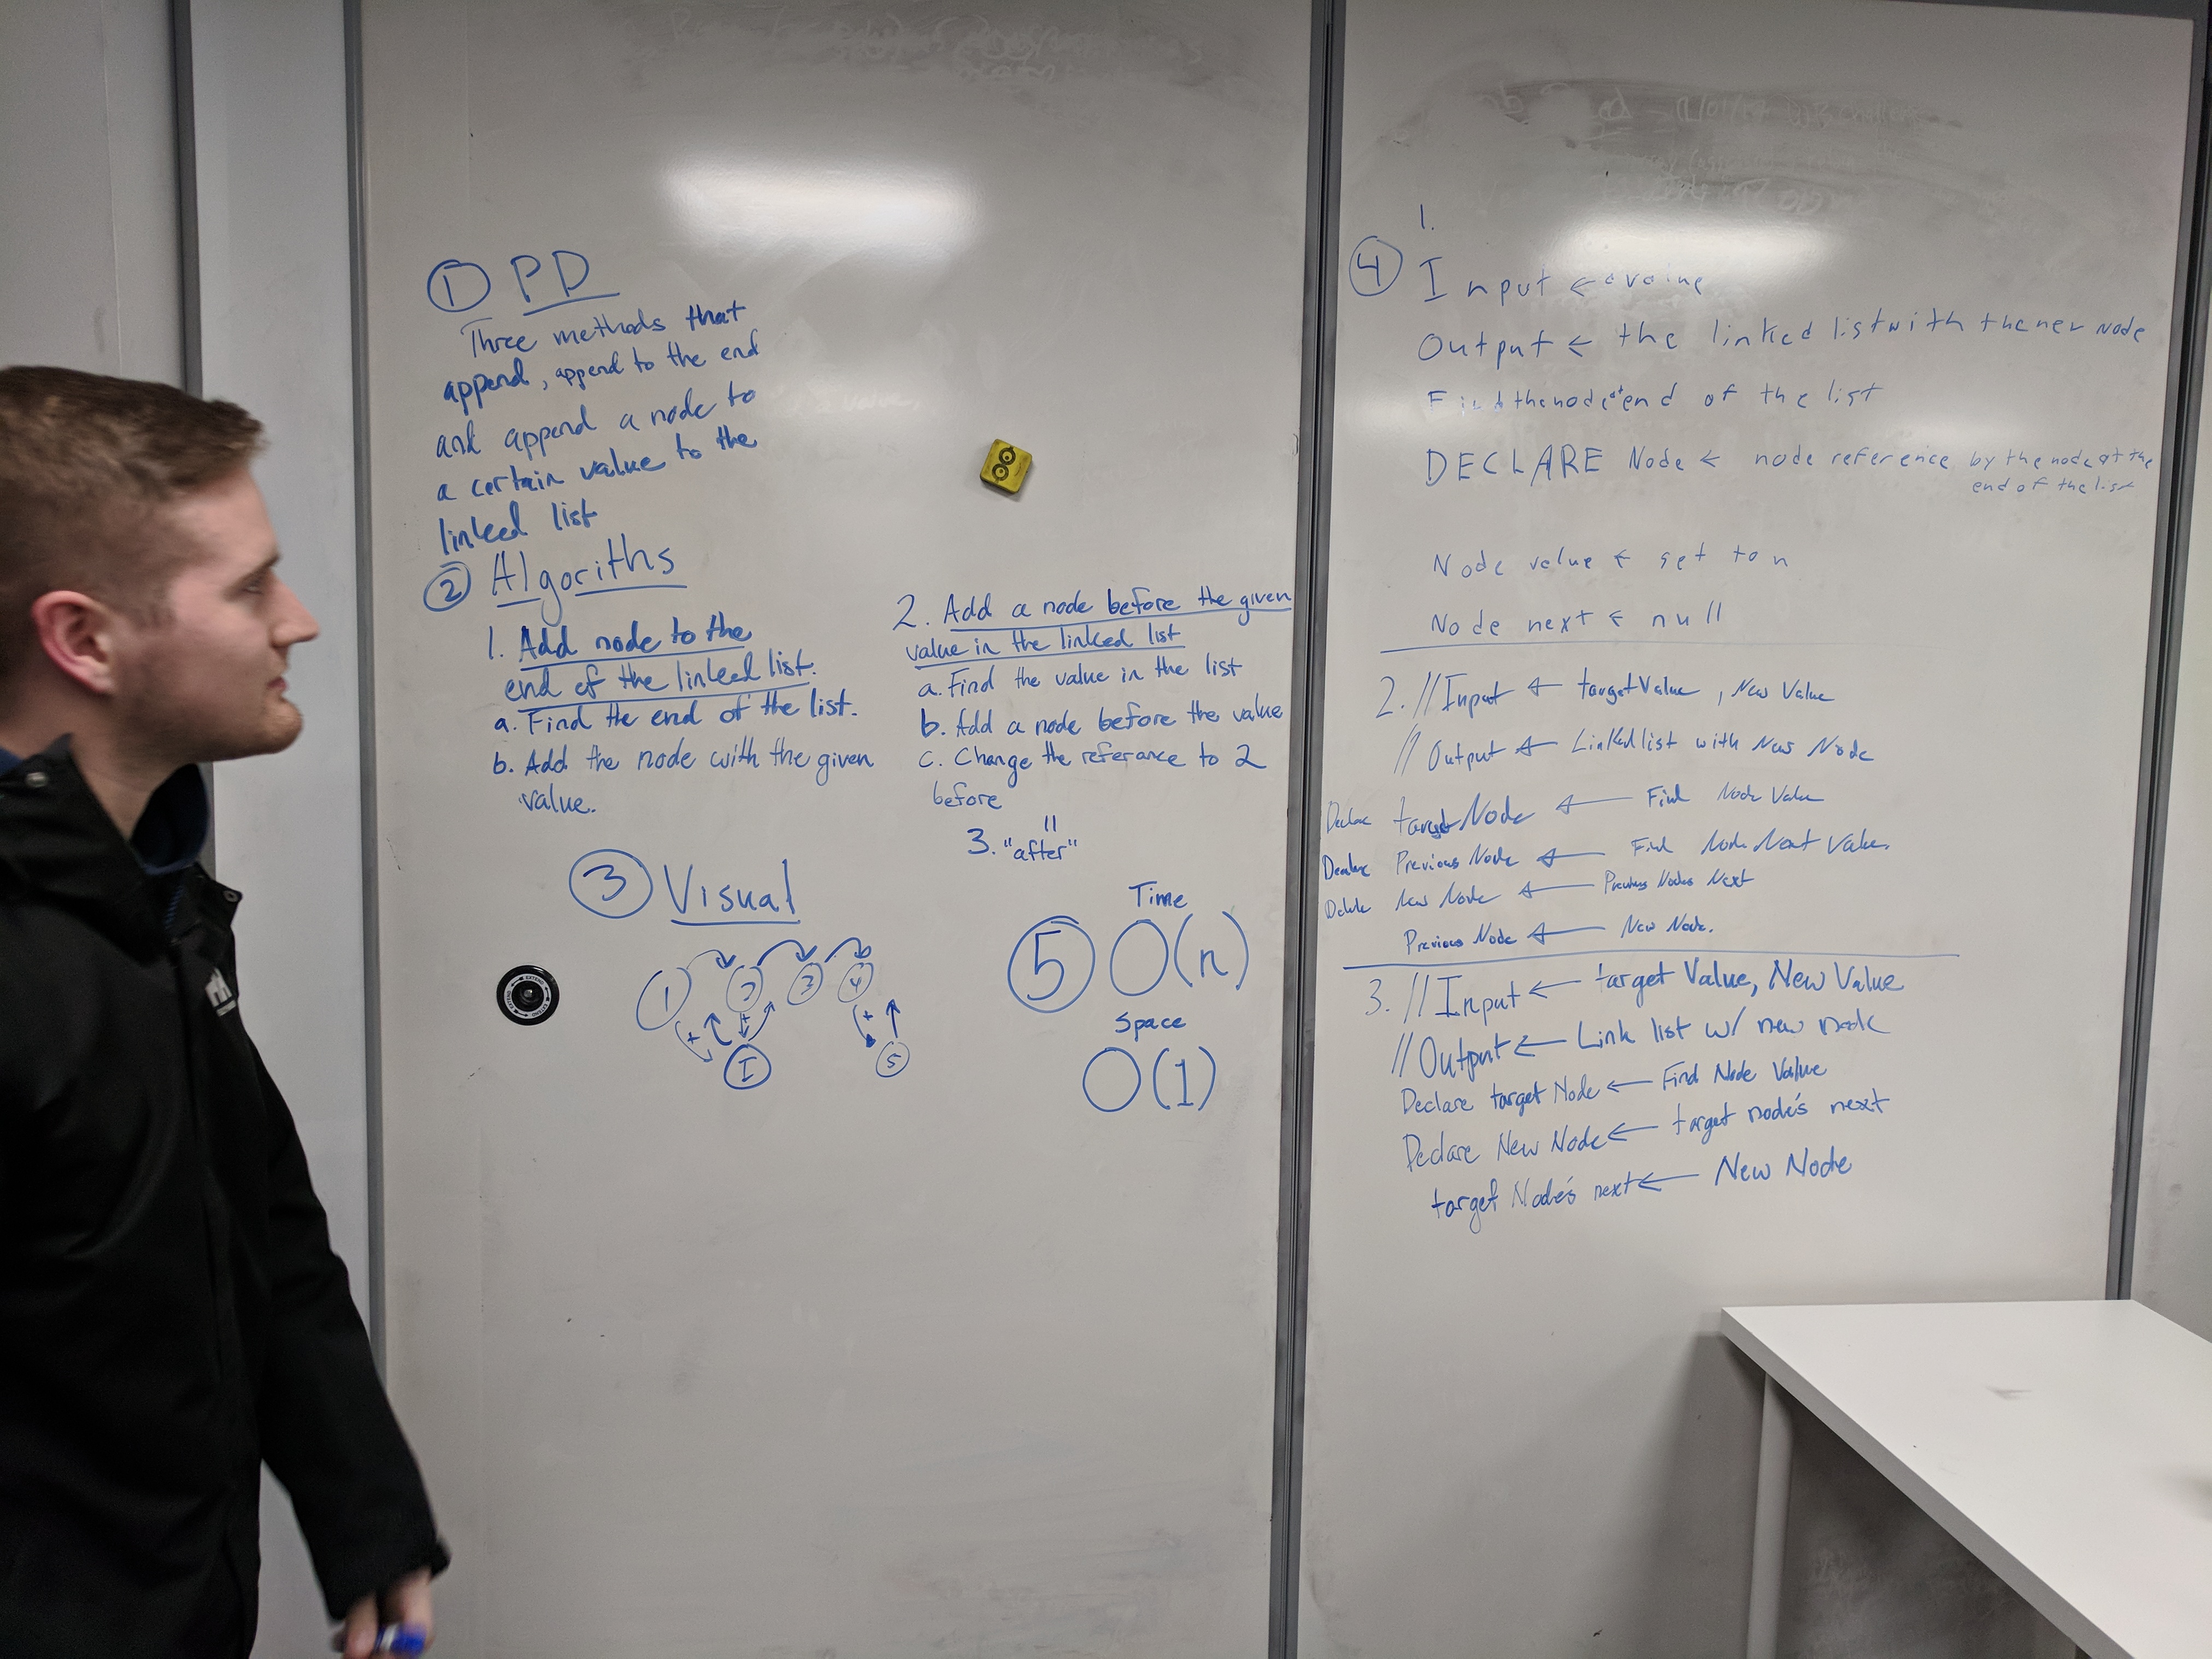 ① PD
Three methods that
append, append to the end
and append a node to
a certain value to the
linked list
② Algoriths
1. Add node to the
end of the linked list.
a. Find the end of the list.
b. Add the node with the given
value.
2. Add a node before the given
value in the linked list
a. Find the value in the list
b. Add a node before the value
c. Change the referance to 2
before
3. "after"
③ Visual
1 2 3 4
I 5
Time
⑤ O(n)
Space
O(1)
1.
④ Input ← value
Output ← the linked list with the new node
Find the node at end of the list
DECLARE Node ← node reference by the node at the
end of the list
Node value ← set to n
Node next ← null
2. // Input ← target Value, New Value
// Output ← Linked list with New Node
Declare target Node ← Find Node Value
Declare Previous Node ← Find Node Next Value.
New Node ← Previous Nodes Next
Previous Node ← New Node.
3. // Input ← target Value, New Value
// Output ← Link list w/ new node
Declare target Node ← Find Node Value
Declare New Node ← target node's next
target Node's next ← New Node